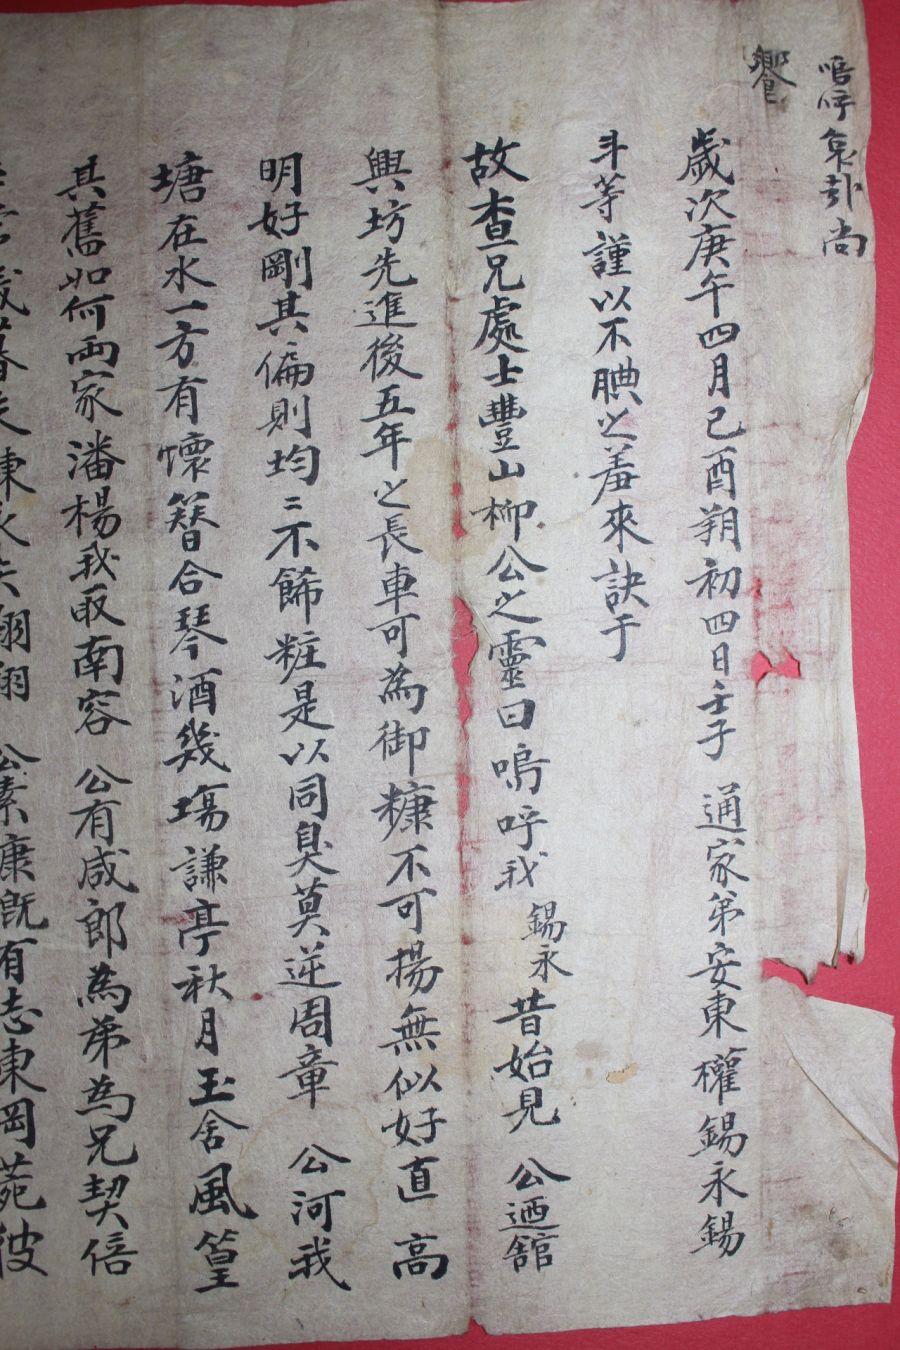 嗚呼哀哉尚
饗
歲次庚午四月己酉朔初四日壬子 通家弟安東權錫永錫
斗等謹以不腆之羞來訣于
故査兄處士豐山柳公之靈曰嗚呼我 錫永 昔始見 公迺舘
興坊先進後五年之長車可為御糠不可揚無似好直 高
明好剛其偏則均〻不餙粧是以同臭莫逆周章 公河我
塘在水一方有懷簪合琴酒幾塲謙亭秋月玉舍風篁
其舊如何兩家潘楊我取南容 公有咸郎為弟為兄契倍
公素康旣有志東岡菀彼